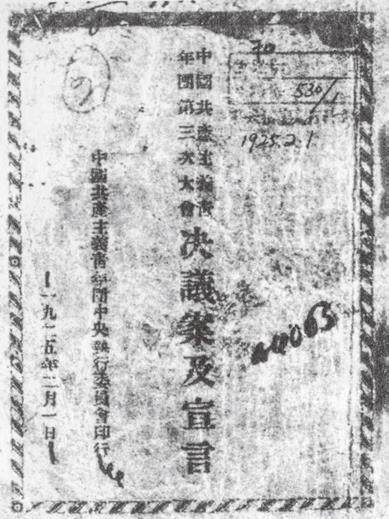 20
530/1
1925.2.1.
中國共產主義青
年團第三次大會
決議案及宣言
00063
中國共產主義青年團中央執行委員會印行
一九二五年二月一日